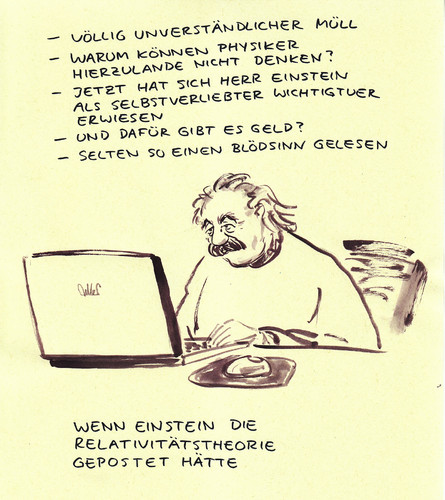 - VÖLLIG UNVERSTÄNDLICHER MÜLL
- WARUM KÖNNEN PHYSIKER
HIERZULANDE NICHT DENKEN?
- JETZT HAT SICH HERR EINSTEIN
ALS SELBSTVERLIEBTER WICHTIGTUER
ERWIESEN
- UND DAFÜR GIBT ES GELD?
- SELTEN SO EINEN BLÖDSINN GELESEN
WENN EINSTEIN DIE
RELATIVITÄTSTHEORIE
GEPOSTET HÄTTE